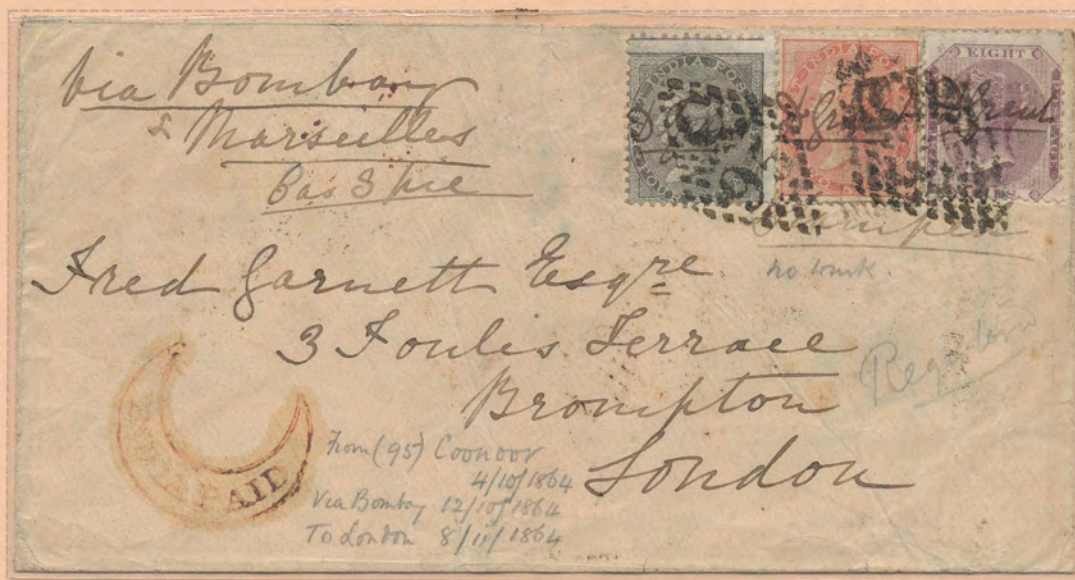 via Bombay
& Marseilles
EIGHT
INDIA POS
INDIA PO
Stamped
no wmk.
Fred Garnett Esqre
3 Foulis Terrace
Brompton
London
INDIA PAID
From (95) Coonoor
4/10/1864
Via Bombay 12/10/1864
To London 8/11/1864